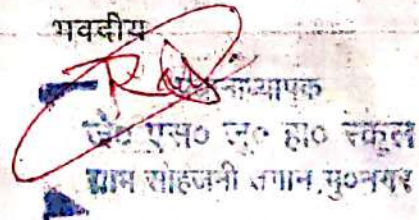 भवदीय
प्रधानाध्यापक
जे० एस० जू० हा० स्कूल
ग्राम सोहजनी तगान मु०नगर